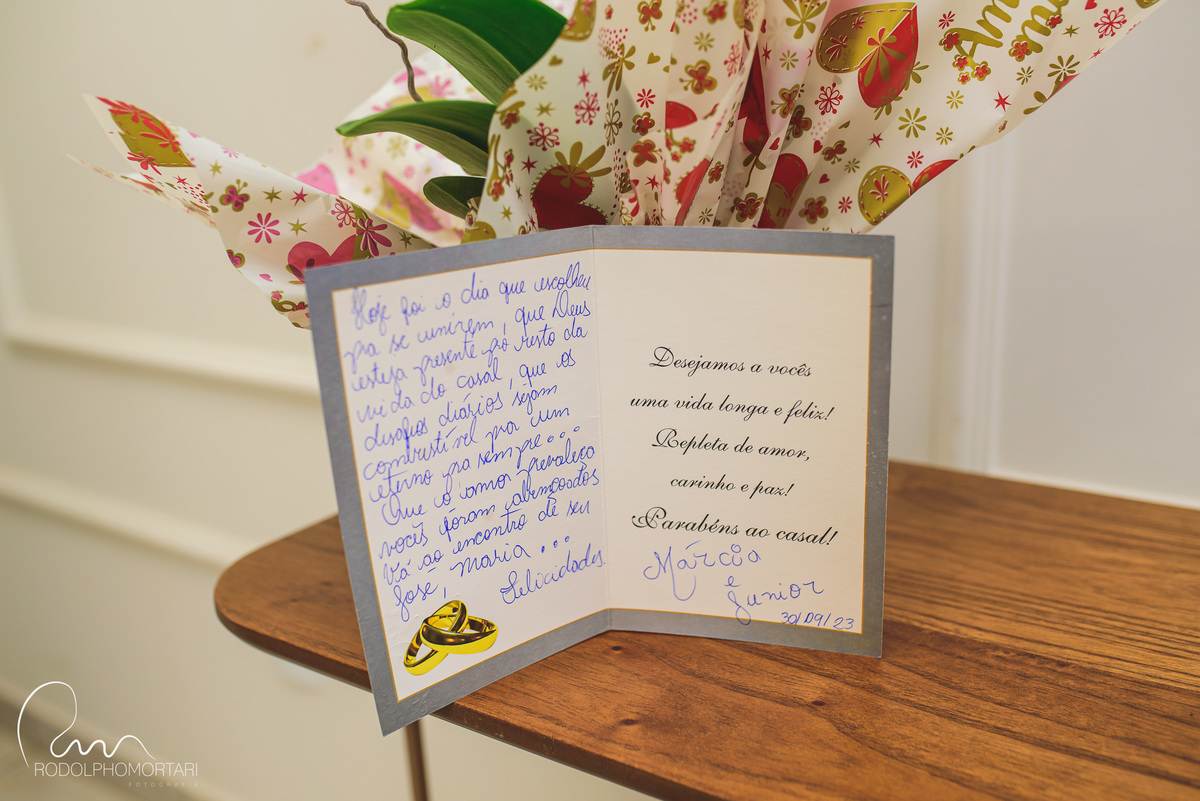 Hoje foi o dia que escolheu
pra se unirem, que Deus
esteja presente po resto da
vida do casal, que os
desafios diários sejam
combustível pra um
eterno pra sempre...
Que o amor prevaleça
vocês foram abençoados
Vá ao encontro de seu
José, Maria...
Felicidades
Desejamos a vocês
uma vida longa e feliz!
Repleta de amor,
carinho e paz!
Parabéns ao casal!
Márcia
e
Junior
30/09/23
RODOLPHOMORTARI
FOTOGRAFIA